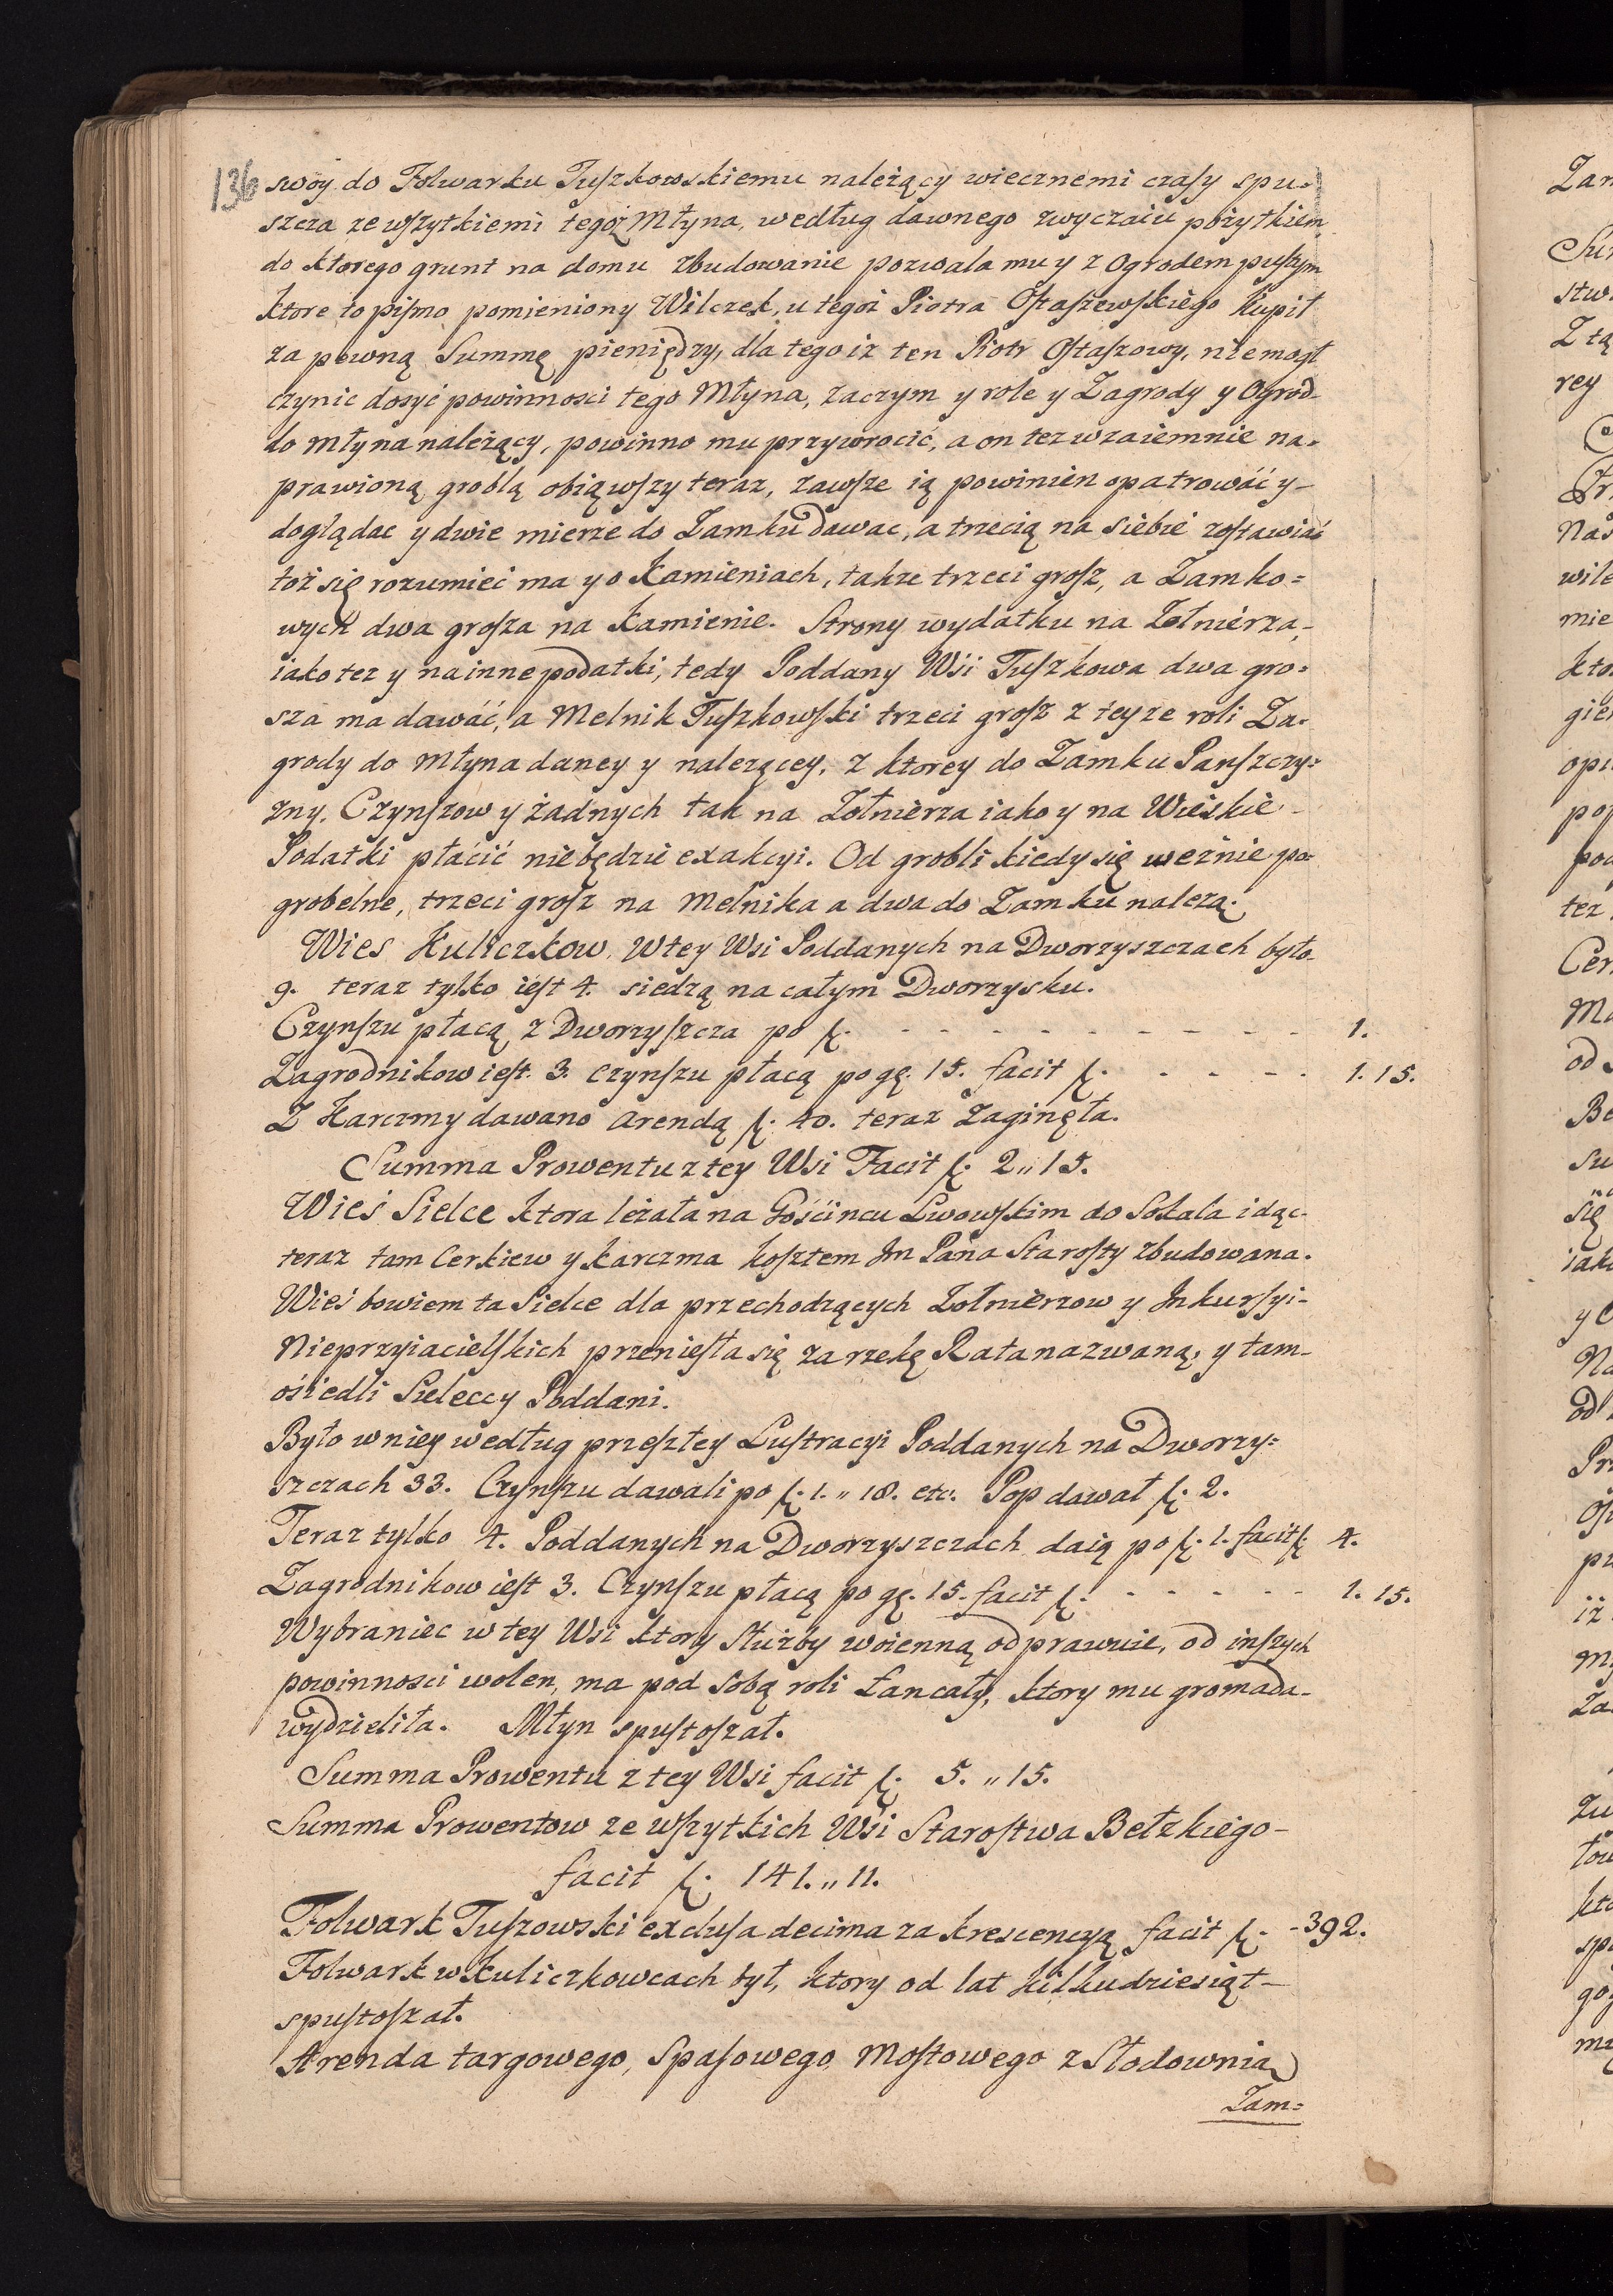 136
swoy do Folwarku Tuszkowskiemu należący wiecznemi czasy spu=
szcza ze wszytkiemi tegoż Młyna, według dawnego zwyczaiu pożytkiem
do ktorego grunt na domu zbudowanie pozwala mu y z Ogrodem pustym
ktore to pismo pomieniony Wilczek, u tegoż Piotra Ostaszewskiego kupił
za pewną Summę pieniędzy, dla tego iz ten Piotr Ostaszowy, niemogł
czynic dosyć powinnosci tego Młyna, zaczym y role y Zagrody y Ogrod
do Młyna należący, powinno mu przywrocić, a on tez wzaiemnie na=
prawioną groblą obiąwszy teraz, zawsze ią powinien opatrowáć y-
doglądac y dwie mierze do Zamku dawac, a trzecią na siebie zostawiać
toż się rozumieć ma y o Kamieniach, takze trzeci grosz, a Zamko=
wych dwa grosza na Kamienie. Strony wydatku na Żołnierza,-
iako tez y na inne podatki, tedy Poddany Wśi Tuszkowa dwa gro=
sza ma dawáć, a Melnik Tuszkowski trzeci grosz z teyze roli Za=
grody do Młyna daney y nalezącey, z ktorey do Zamku Panszczy=
zny, Czynszow y żadnych tak na Zołnierza iako y na Wieiskie-
Podatki płacić niebędzie exakcyi. Od grobli kiedy się weźnie po=
grobelne, trzeci grosz na Melnika a dwa do Zamku nalezą.
Wies Kuliczkow. W tey Wsi Poddanych na Dworzyszczach było-
9. teraz tylko iest 4. siedzą na całym Dworzysku.
Czynszu płacą z Dworzyszcza po f. - - - - - - - - - - - 1.
Zagrodnikow iest. 3. czynszu płacą po gę. 15. facit f. - - - - - 1. 15.
Z Karczmy dawano arendą f. 40. teraz Zaginęła.
Summa Prowentu z tey Wsi Facit f. 2„15.
Wieś Sielce ktora leżała na Gościncu Lwowskim do Sokala idąc-
teraz tam Cerkiew y Karczma kosztem Jm Pana Starosty zbudowana.
Wieś bowiem ta Sielce dla przechodzących Żołnierzow y Inkursyi-
Nieprzyiacielskich przeniesła się za rzekę Rata nazwaną, y tam-
ośiedli Sieleccy Poddani.
Było w niey według przeszłey Lustracyi Poddanych na Dworzy=
szczach 33. Czynszu dawali po f. 1.„18. etc. Pop dawał f. 2.
Teraz tylko 4. Poddanych na Dworzyszczach daią po f. 1. facit f. 4.
Zagrodnikow iest 3. Czynszu płacą po gę. 15. facit f. - - - - - - 1. 15.
Wybraniec w tey Wsi ktory służby woienną odprawuie, od inszych
powinnosci wolen, ma pod sobą roli Łan cały, ktory mu gromada-
wydzieliła. Młyn spustoszał.
Summa Prowentu z tey Wsi facit f. 5.„15.
Summa Prowentow ze wszytkich Wśi Starostwa Bełzkiego-
facit f. 141.„11.
Folwark Tuszowski exclusa decima za krescencyą facit f. - 392.
Folwark w Kuliczkowcach był, ktory od lat kilkudziesiąt-
spustoszał.
Arenda targowego, Spasowego Mostowego z Słodownią
Zam=